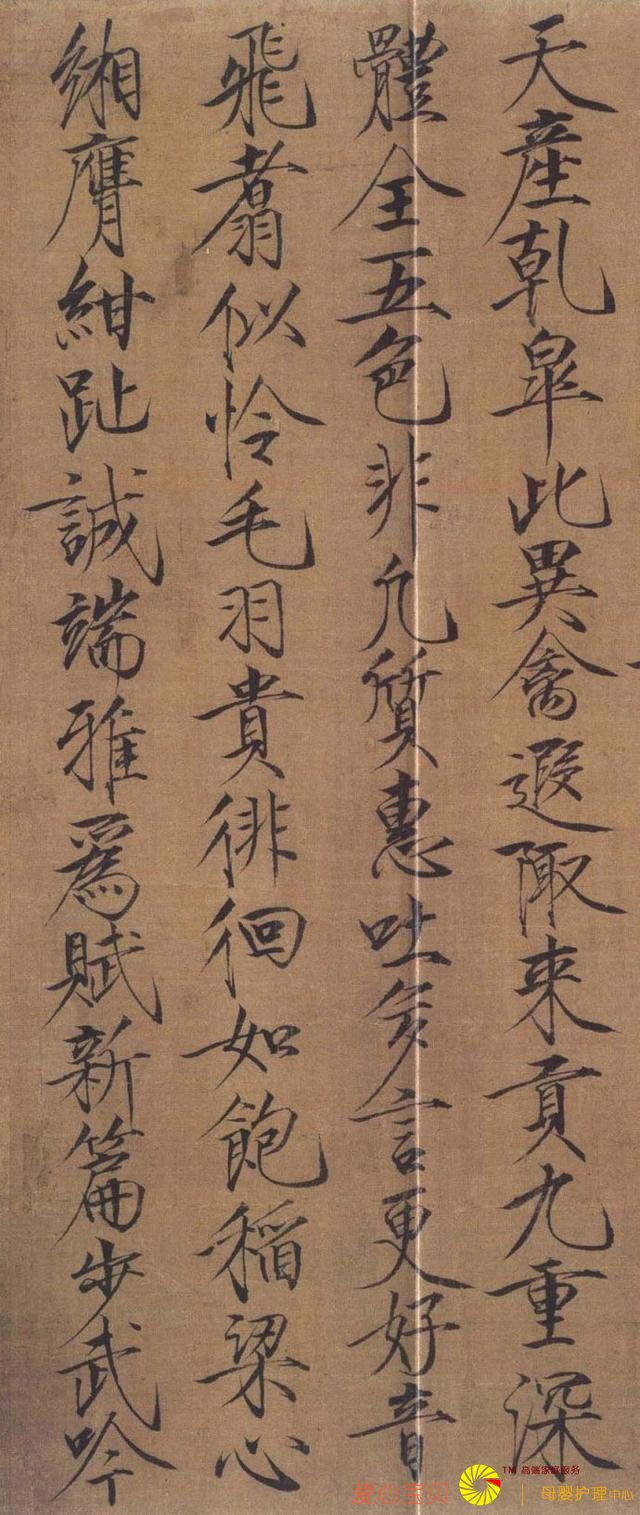 天產乹皋此異禽遐陬来貢九重深
體全五色非凢質惠吐多言更好音
飛翥似怜毛羽貴徘徊如飽稲梁心
緗膺紺趾誠端雅爲賦新篇步武吟
TM 高端家庭服务
爱心宝贝 | 母婴护理中心